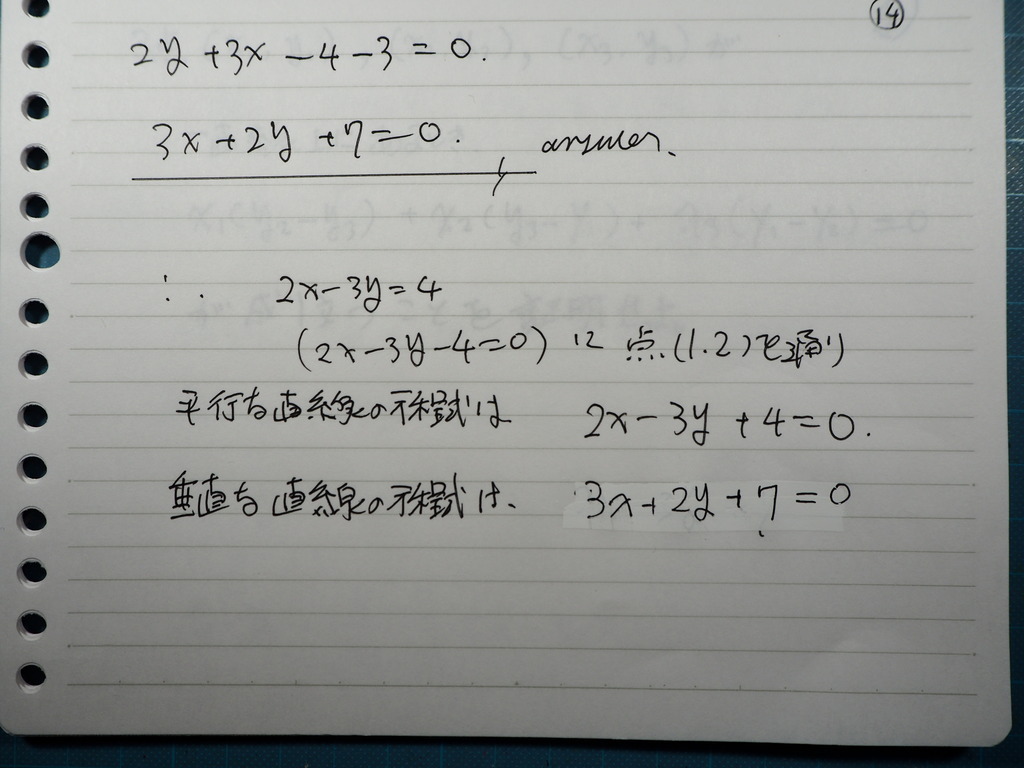 ⑭
2y+3x-4-3=0.
3x+2y+7=0. answer.
∴ 2x-3y=4
(2x-3y-4=0) に 点(1.2)を通り
平行な直線の方程式は 2x-3y+4=0.
垂直な直線の方程式は、 3x+2y+7=0